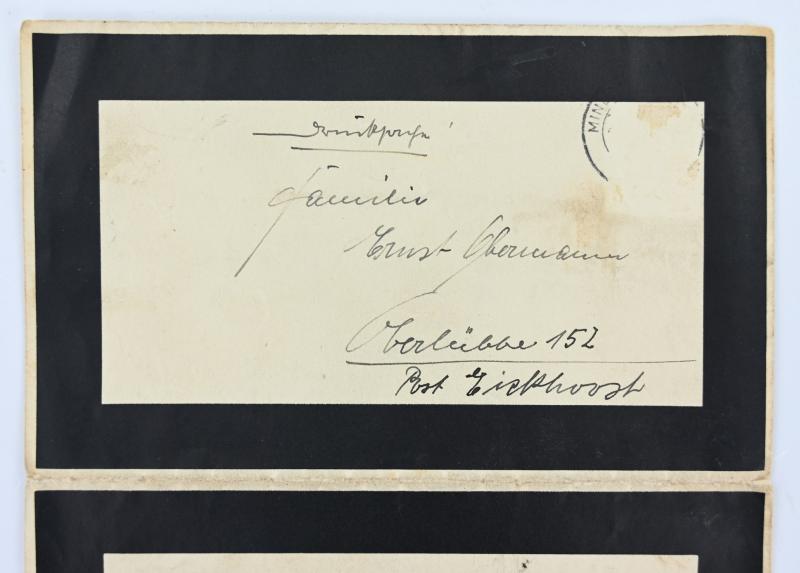 Drucksache!
MIN
Familie
Ernst Obermann
Oberlübbe 152
Post Eickhorst